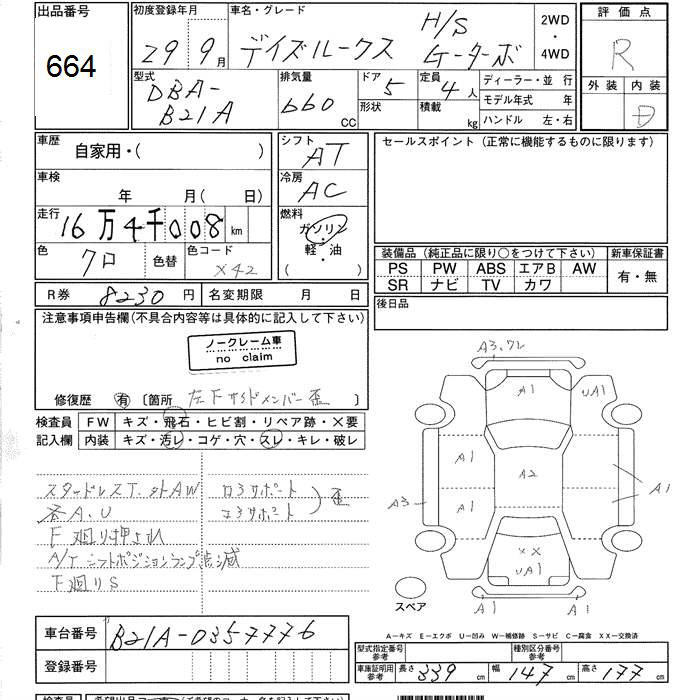 出品番号
664
初度登録年月
29 9月
車名・グレード
デイズルークス
H/S
G-ターボ
2WD
・
4WD
評価点
R
外装 内装
D
型式
DBA-
B21A
排気量
660
CC
ドア
5
形状
定員
4人
積載
kg
ディーラー・並 行
モデル年式 年
ハンドル 左・右
車歴
自家用・( )
車検
年 月( 日)
走行
16万4千008 km
色
クロ
色替
色コード
X42
シフト
AT
冷房
AC
燃料
ガソリン
・
軽・油
( )
セールスポイント (正常に機能するものに限ります)
装備品 (純正品に限り○をつけて下さい)
新車保証書
PS PW ABS エアB AW
SR ナビ TV カワ
有・無
後日品
R券 8230 円
名変期限 月 日
注意事項申告欄(不具合内容等は具体的に記入して下さい)
ノークレーム車
no claim
修復歴 有 〔箇所 左Fサイドメンバー歪 〕
検査員
記入欄
FW キズ・飛石・ヒビ割・リペア跡・×要
内装 キズ・汚レ・コゲ・穴・スレ・キレ・破レ
スタッドレスT.外AW
各A.U
F廻り押され
A/Tシフトポジションランプ点滅
下廻りS
ロアサポート
コアサポート
歪
A3.ワレ
A1
UA1
A1
A2
A3
A1
A1
XX
UA1
A1
A1
スペア
A-キズ E-エクボ U-凹み W-補修跡 S-サビ C-腐食 XX-交換済
車台番号
B21A-0357776
登録番号
型式指定番号
参考
種別区分番号
参考
車庫証明用
参考
長さ 339 cm
幅 147 cm
高さ 177 cm